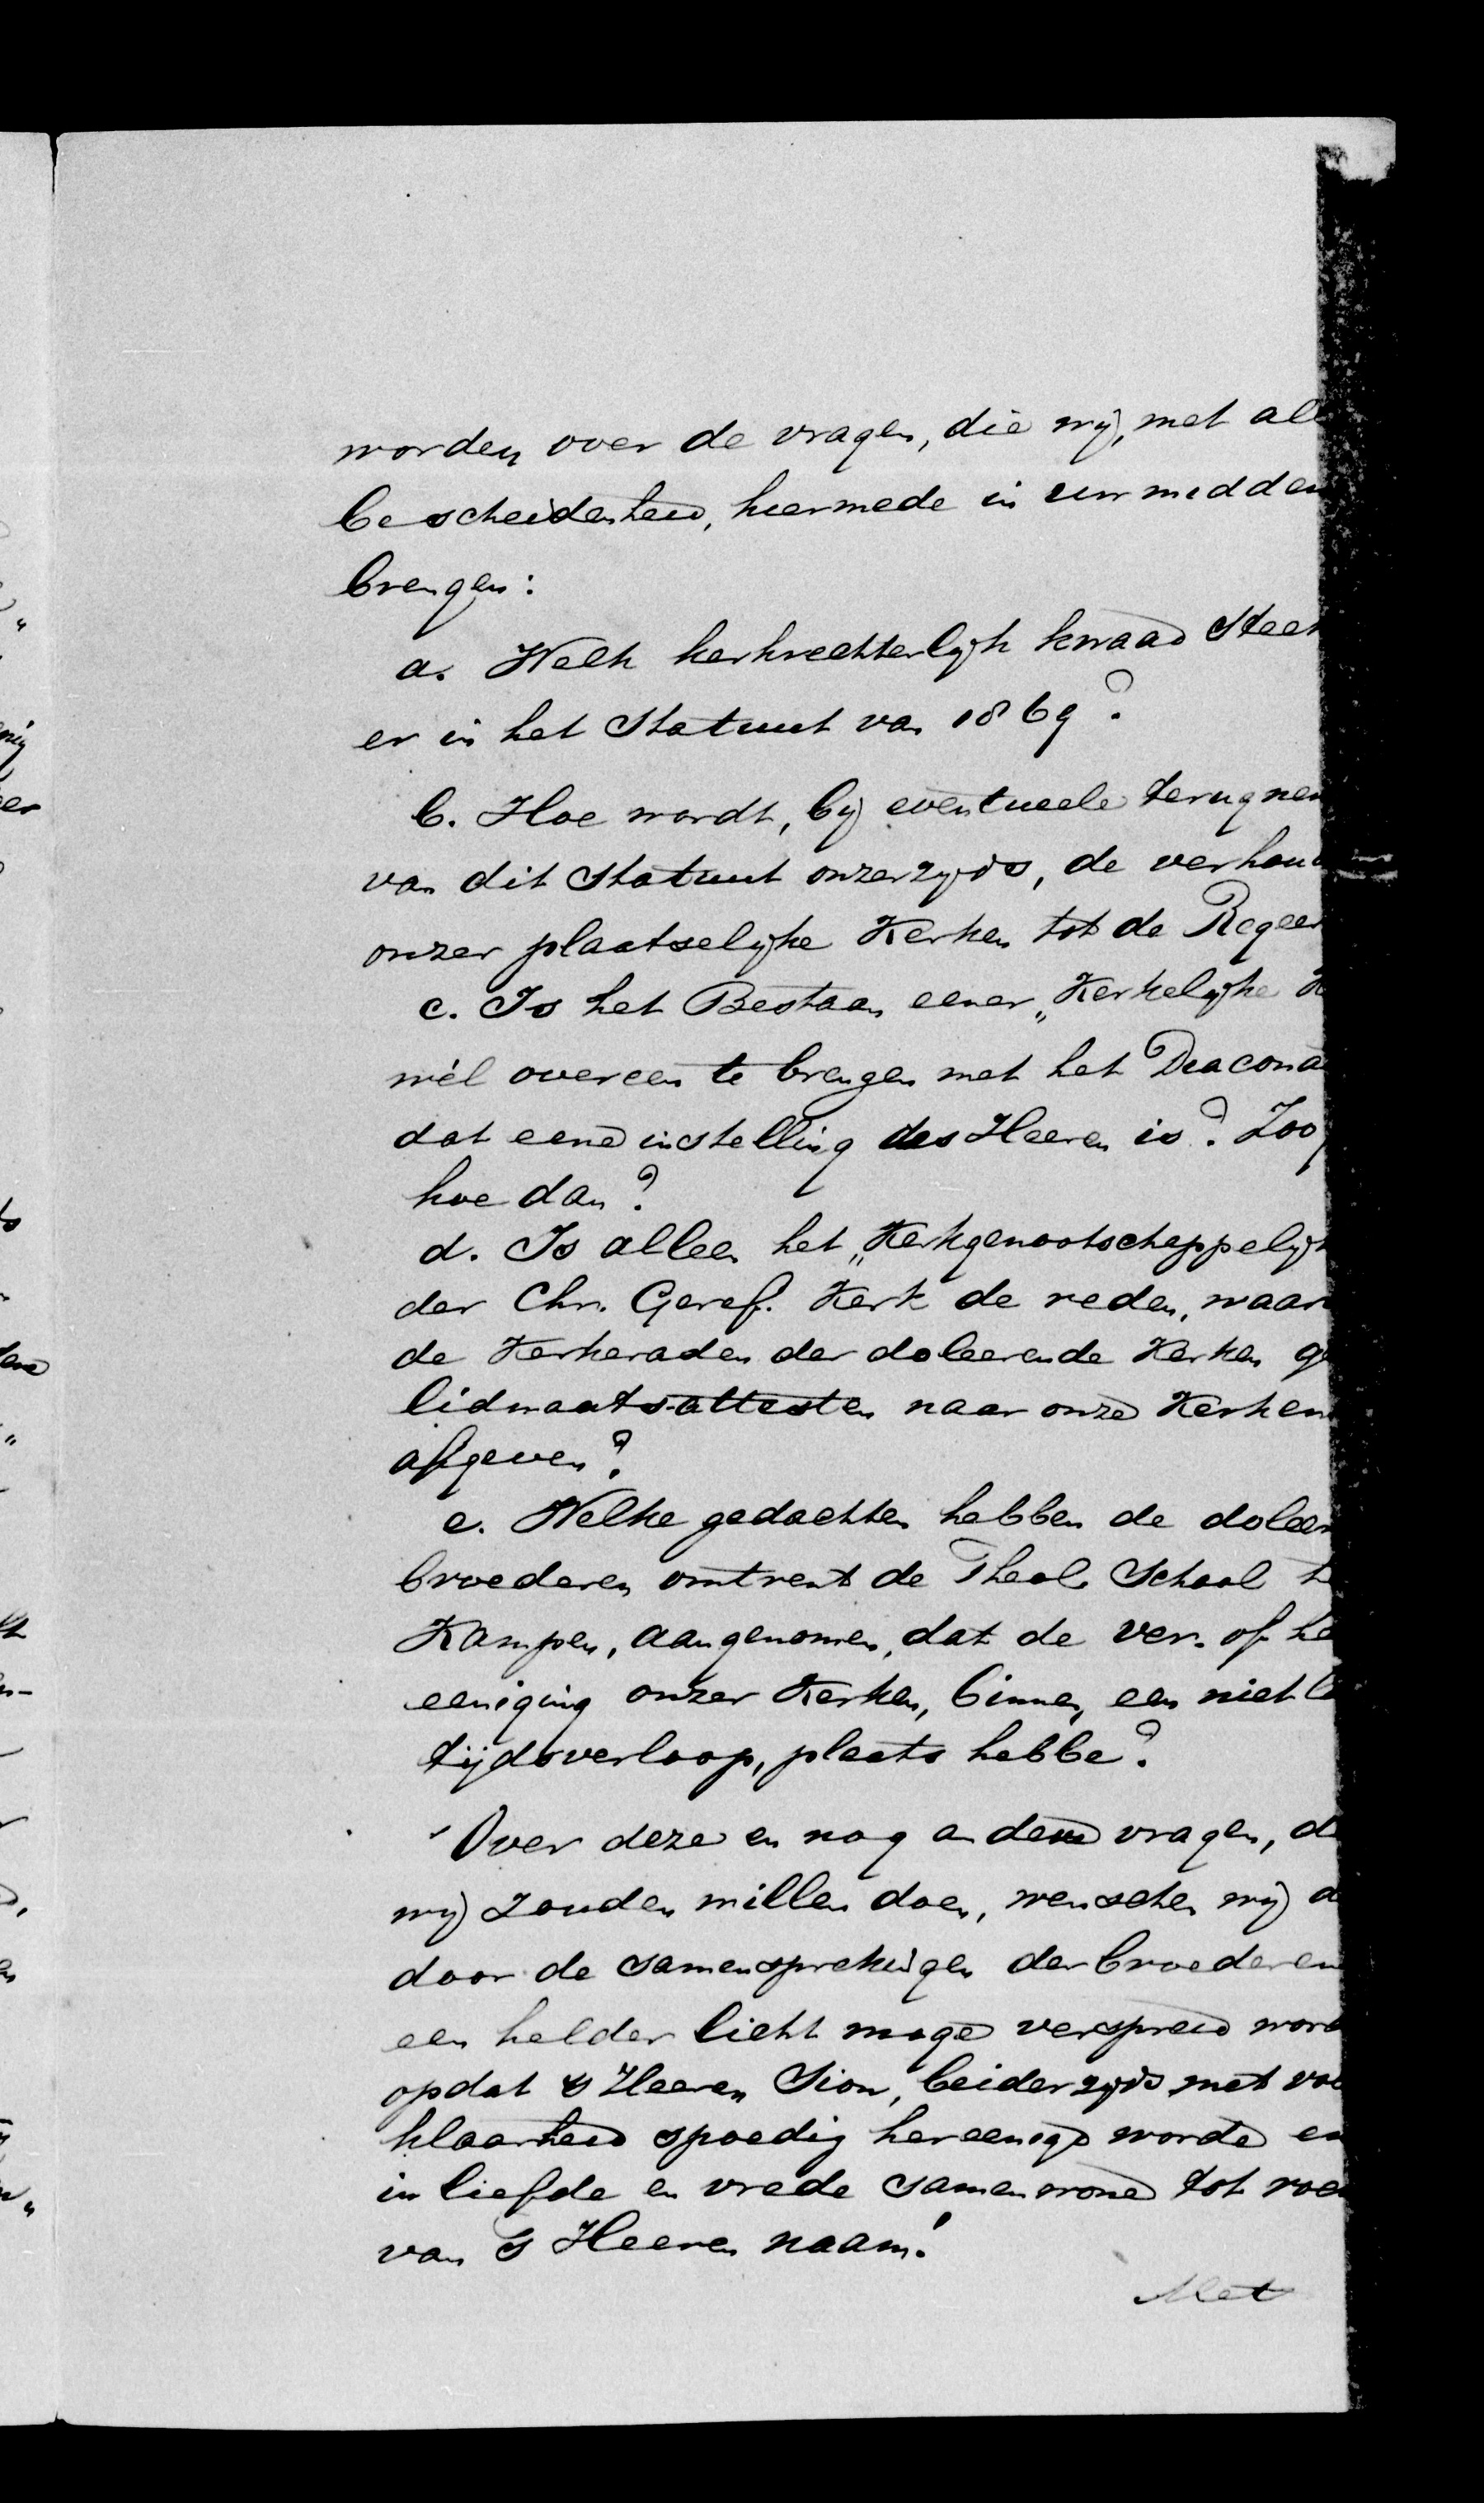 worden over de vragen, die wij, met alle
bescheidenheid, hiermede in uw midden
brengen:
a. Welk kerkrechterlijk kwaad steek
er in het Statuut van 1869?
b. Hoe wordt, bij eventueele terugnem
van dit Statuut onzerzijds, de verhoud
onzer plaatselijke Kerken tot de Regeer
c. Is het Bestaan eener „Kerkelijke K
wèl overeen te brengen met het Diacona
dat eene instelling des Heeren is? Zoo
hoe dan?
d. Is alleen het „Kerkgenootschappelijk
der Chr. Geref. Kerk de reden, waar
de Kerkeraden der doleerende Kerken ge
lidmaatsattesten naar onze Kerken
afgeven?
e. Welke gedachten hebben de doleer
broederen omtrent de Theol. School te
Kampen, aangenomen, dat de ver. of he
eeniging onzer Kerken, binnen een niet l
tijdsverloop, plaats hebbe?
Over deze en nog andere vragen, d
wij zouden willen doen, wenschen wij d
door de samensprekingen der broederen
een helder licht moge verspreid word
opdat 's Heeren Sion, beiderzijds met vol
klaarheid spoedig hereenigd worde en
in liefde en vrede samenwone tot roem
van 's Heeren naam!
Met